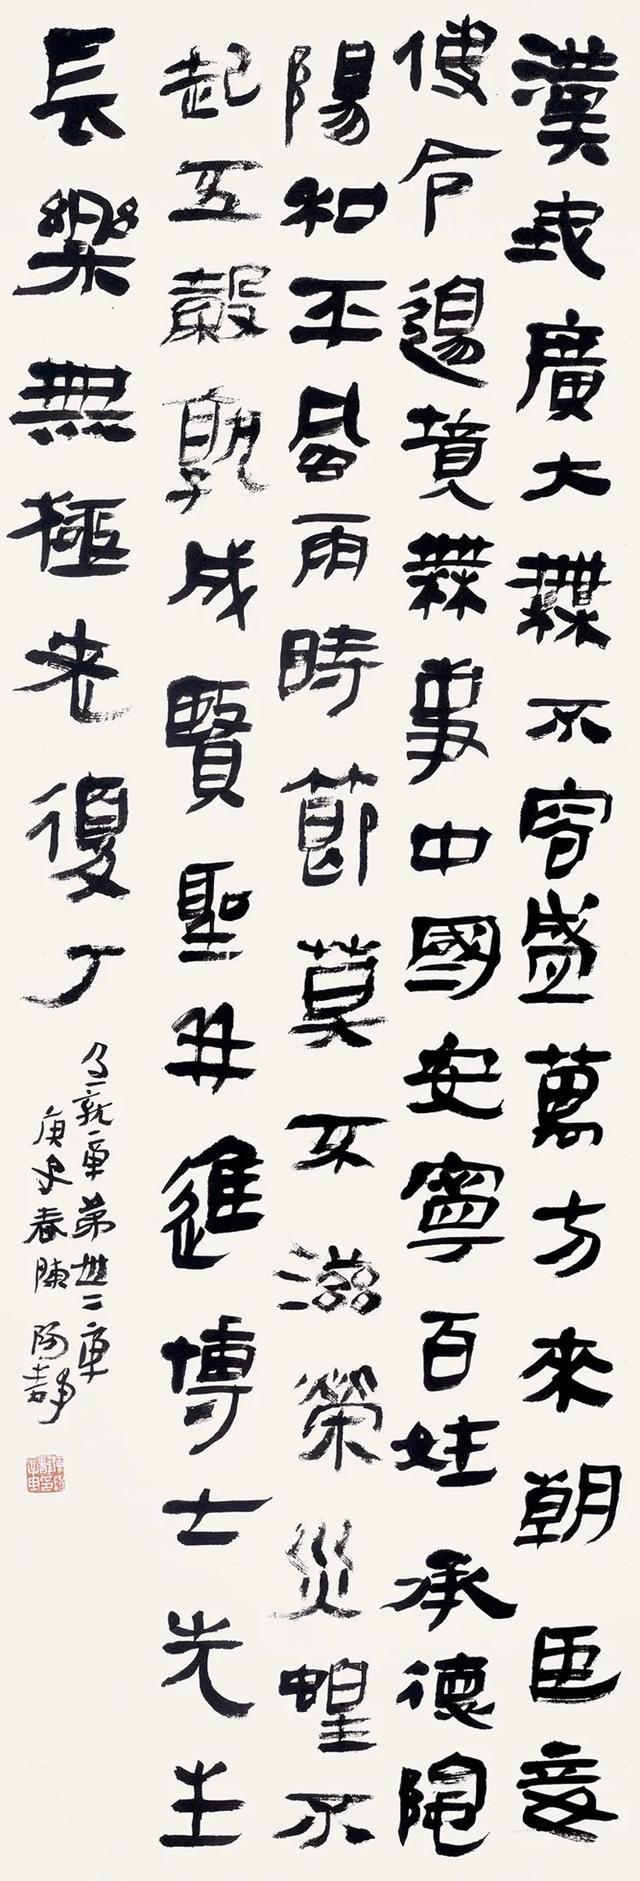 漢地廣大無不容盛萬方來朝臣妾
使令邊境無事中國安寧百姓承德陰
陽和平風雨時節莫不滋榮災蝗不
起五穀孰成賢聖並進博士先生
長樂無極老復丁
急就章第卅二章
庚子春陳陽靜